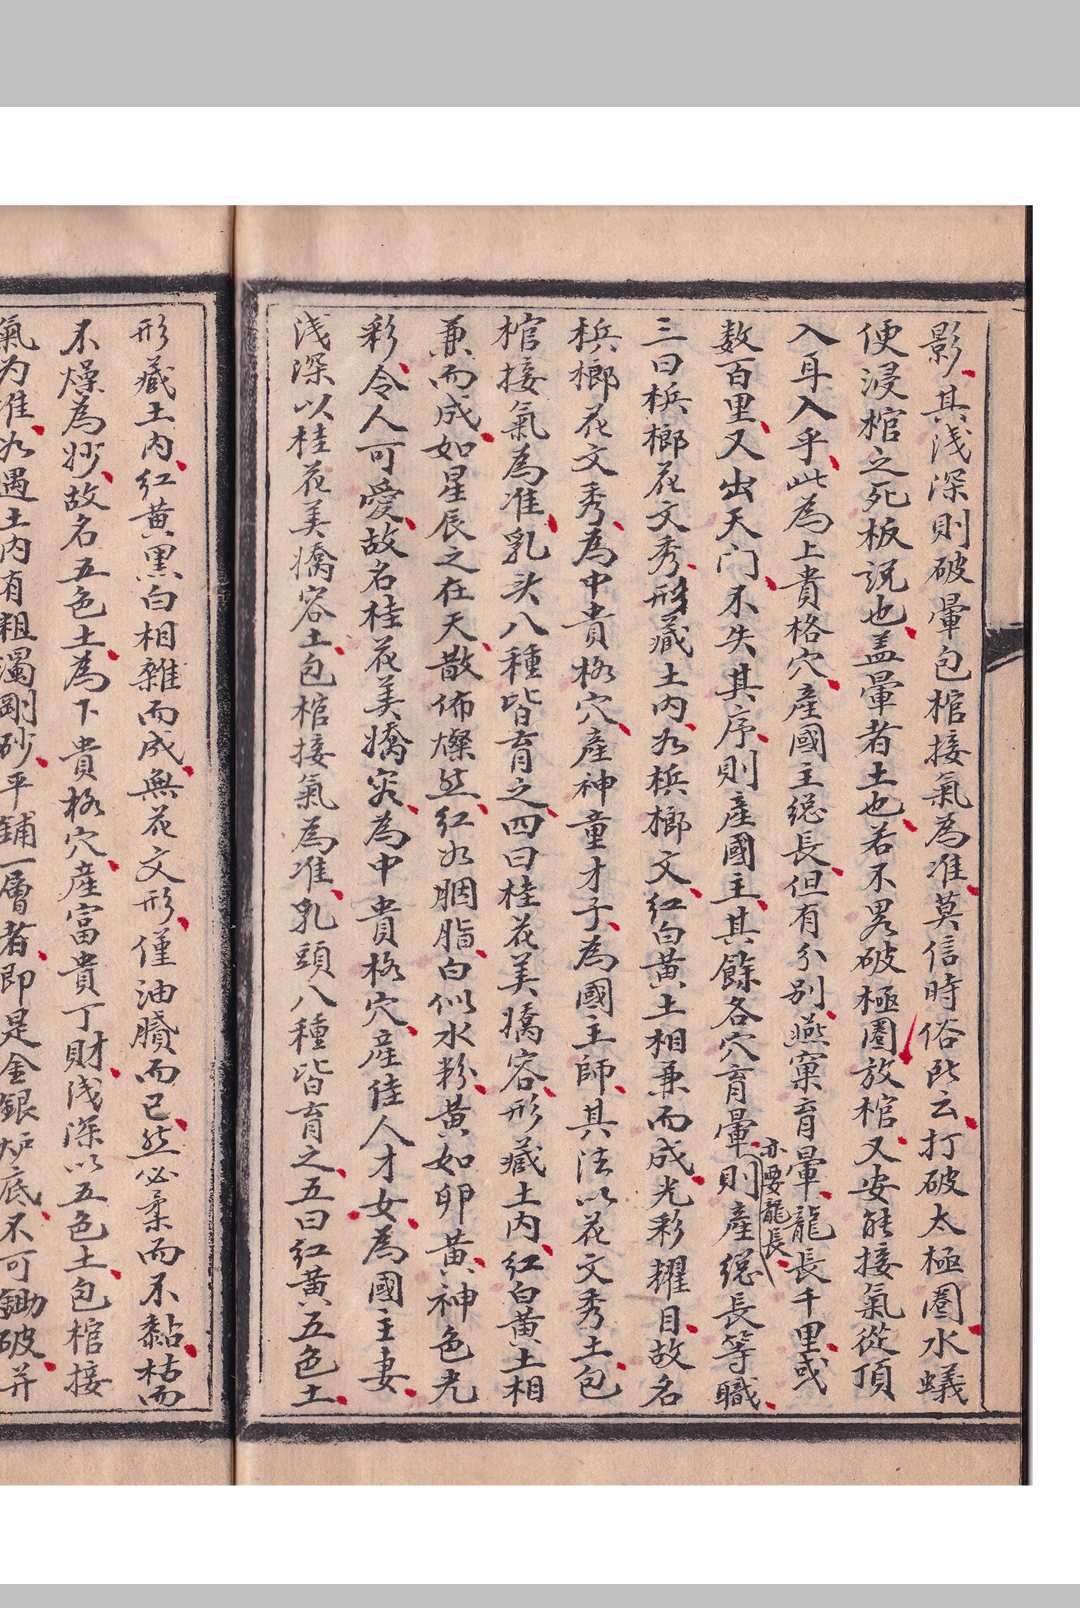 影其浅深則破暈包棺接氣為准莫信時俗所云打破太極圈水蟻
便浸棺之死板說也盖暈者土也若不畧破極圈放棺又安能接氣從頂
入耳入乎此為上貴格穴產國主総長但有分别燕窠育暈龍長千里或
数百里又出天门不失其序則產國主其餘各穴育暈則產総長等職
亦要龍長
三曰梹榔花文秀形藏土内如梹榔文红白黄土相兼而成光彩耀目故名
梹榔花文秀為中貴格穴產神童才子為國主師其法以花文秀土包
棺接氣為准乳头八種皆育之四曰桂花美嬌容形藏土内红白黄土相
兼而成如星辰之在天散佈燦然红如胭脂白似水粉黄如卵黄神色光
彩令人可愛故名桂花美嬌容為中貴格穴產佳人才女為國主妻
浅深以桂花美嬌容土包棺接氣為准乳頭八種皆育之五曰红黄五色土
形藏土内红黄黑白相雜而成無花文形僅油膩而已然必柔而不黏枯而
不燥為妙故名五色土為下貴格穴產富貴丁財浅深以五色土包棺接
氣为准如遇土内有粗濁剛砂平鋪一層者即是金銀炉底不可鋤破并